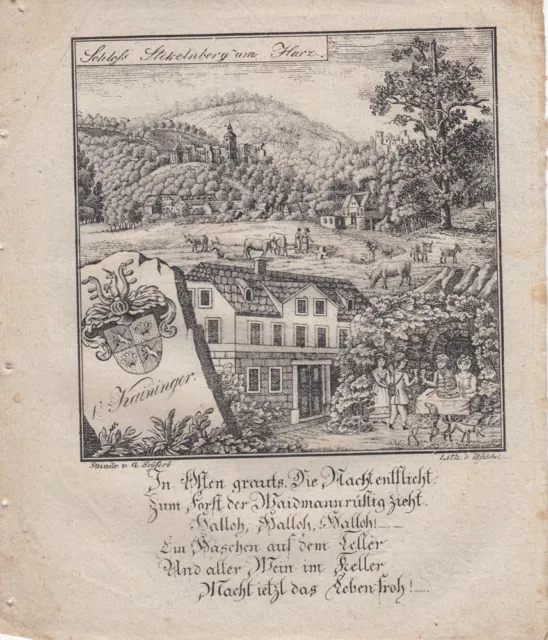 Schloß Stekelnberg am Harz.
v. Kaininger.
Steindr. v. G. Seifert
Lith. v.
In Osten grauts. Die Nacht entflicht.
Zum Forst der Waidmann rüstig zieht.
Halloh, Halloh, Halloh! —
Ein Häschen auf dem Teller
Und alter Wein im Keller
Macht ietzt das Leben froh! —